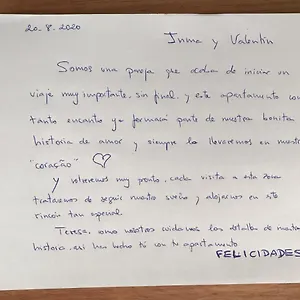 20.8.2020
Inma y Valentín
Somos una pareja que acaba de iniciar un
viaje muy importante, sin final, y este apartamento con
tanto encanto ya formará parte de nuestra bonita
historia de amor y siempre lo llevaremos en nuestro
"coração" ♡
Y volveremos muy pronto, cada visita a esta zona
trataremos de seguir nuestro sueño y alojarnos en este
rincón tan especial.
Teresa, como nosotros cuidamos los detalles de nuestra
historia, así has hecho tú con tu apartamento
FELICIDADES